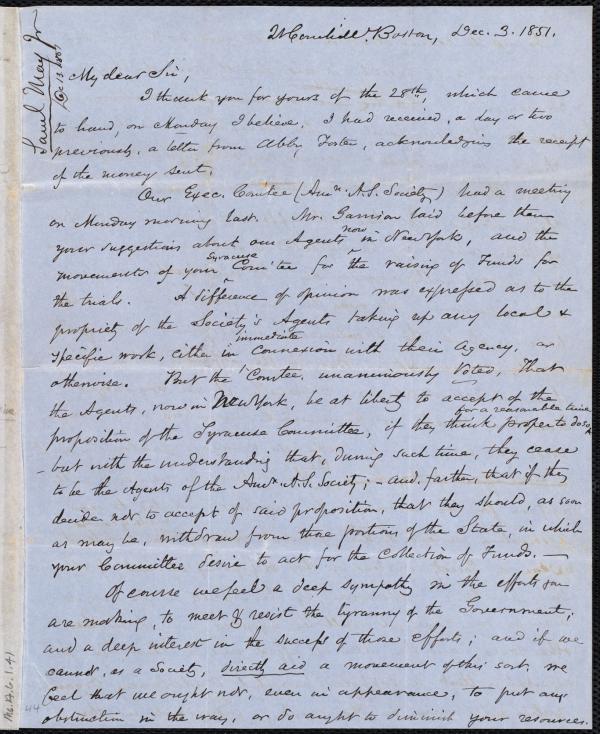 21 Cornhill, Boston, Dec. 3. 1851.
Saml May Jr
Dec. 3. 1851
My dear Sir,
I thank you for yours of the 28th, which came
to hand, on Monday I believe. I had received, a day or two
previously, a letter from Abby Foster, acknowledging the receipt
of the money sent.
Our Exec. Comtee (Amn. A.S. Society) had a meeting
on Monday morning last. Mr. Garrison laid before them
your suggestions about our Agents now in New York, and the
movements of your Syracuse Com'tee for the raising of Funds for
the trials. A difference of opinion was expressed as to the
propriety of the Society's Agents taking up any local &
specific work, either in immediate connexion with their agency, or
otherwise. But the Comtee. unanimously Voted, That
the Agents, now in New York, be at liberty to accept of the
proposition of the Syracuse Committee, for a reasonable time, if they think proper to do so,
- but with the understanding that, during such time, they cease
to be the Agents of the Amn. A.S. Society; - and, farther, that if they
decide not to accept of said proposition, that they should, as soon
as may be, withdraw from those portions of the State, in which
your Committee desire to act for the Collection of Funds. —
Of course we feel a deep sympathy in the efforts you
are making, to meet & resist the tyranny of the Government;
and a deep interest in the success of those efforts; and if we
cannot, as a Society, directly aid a movement of this sort, we
feel that we ought not, even in appearance, to put any
obstruction in the way, or do aught to diminish your resources.
Ms. A. 6. 1. 41
44